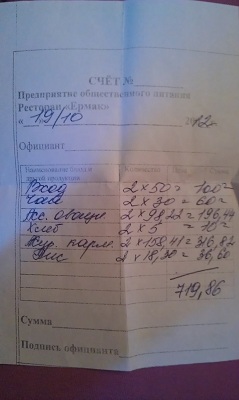 СЧЁТ №
Предприятие общественного питания
Ресторан «Ермак»
« 19/10 2012
Официант
Наименование блюд и другой продукции Количество Цена Сумма
Вход 2 x 50 = 100=
Чай 2 x 30 = 60=
овощи 2 x 98,22 = 196,44
Хлеб 2 x 5 = 10=
Кур. карм. 2 x 158,41 = 316,82
Рис 2 x 18,30 = 36,60
719,86
Сумма
Подпись официанта